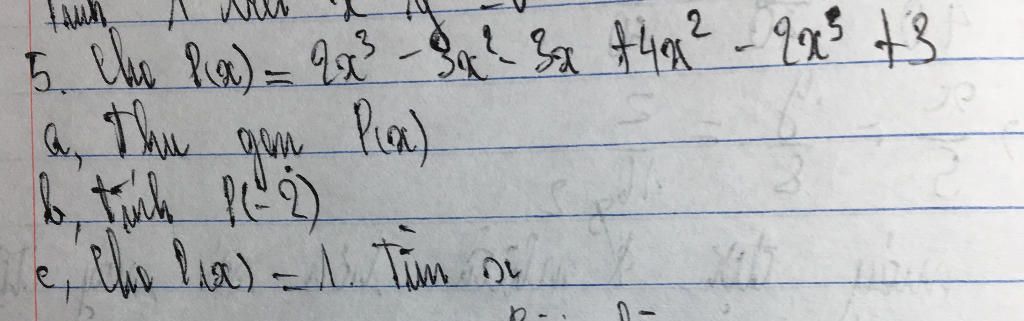 5. Cho P(x) = 2x³ - 3x² - 3x + 4x² - 2x³ + 3
a, Thu gọn P(x)
b, Tính P(-2)
c, Cho P(x) = 1. Tìm x